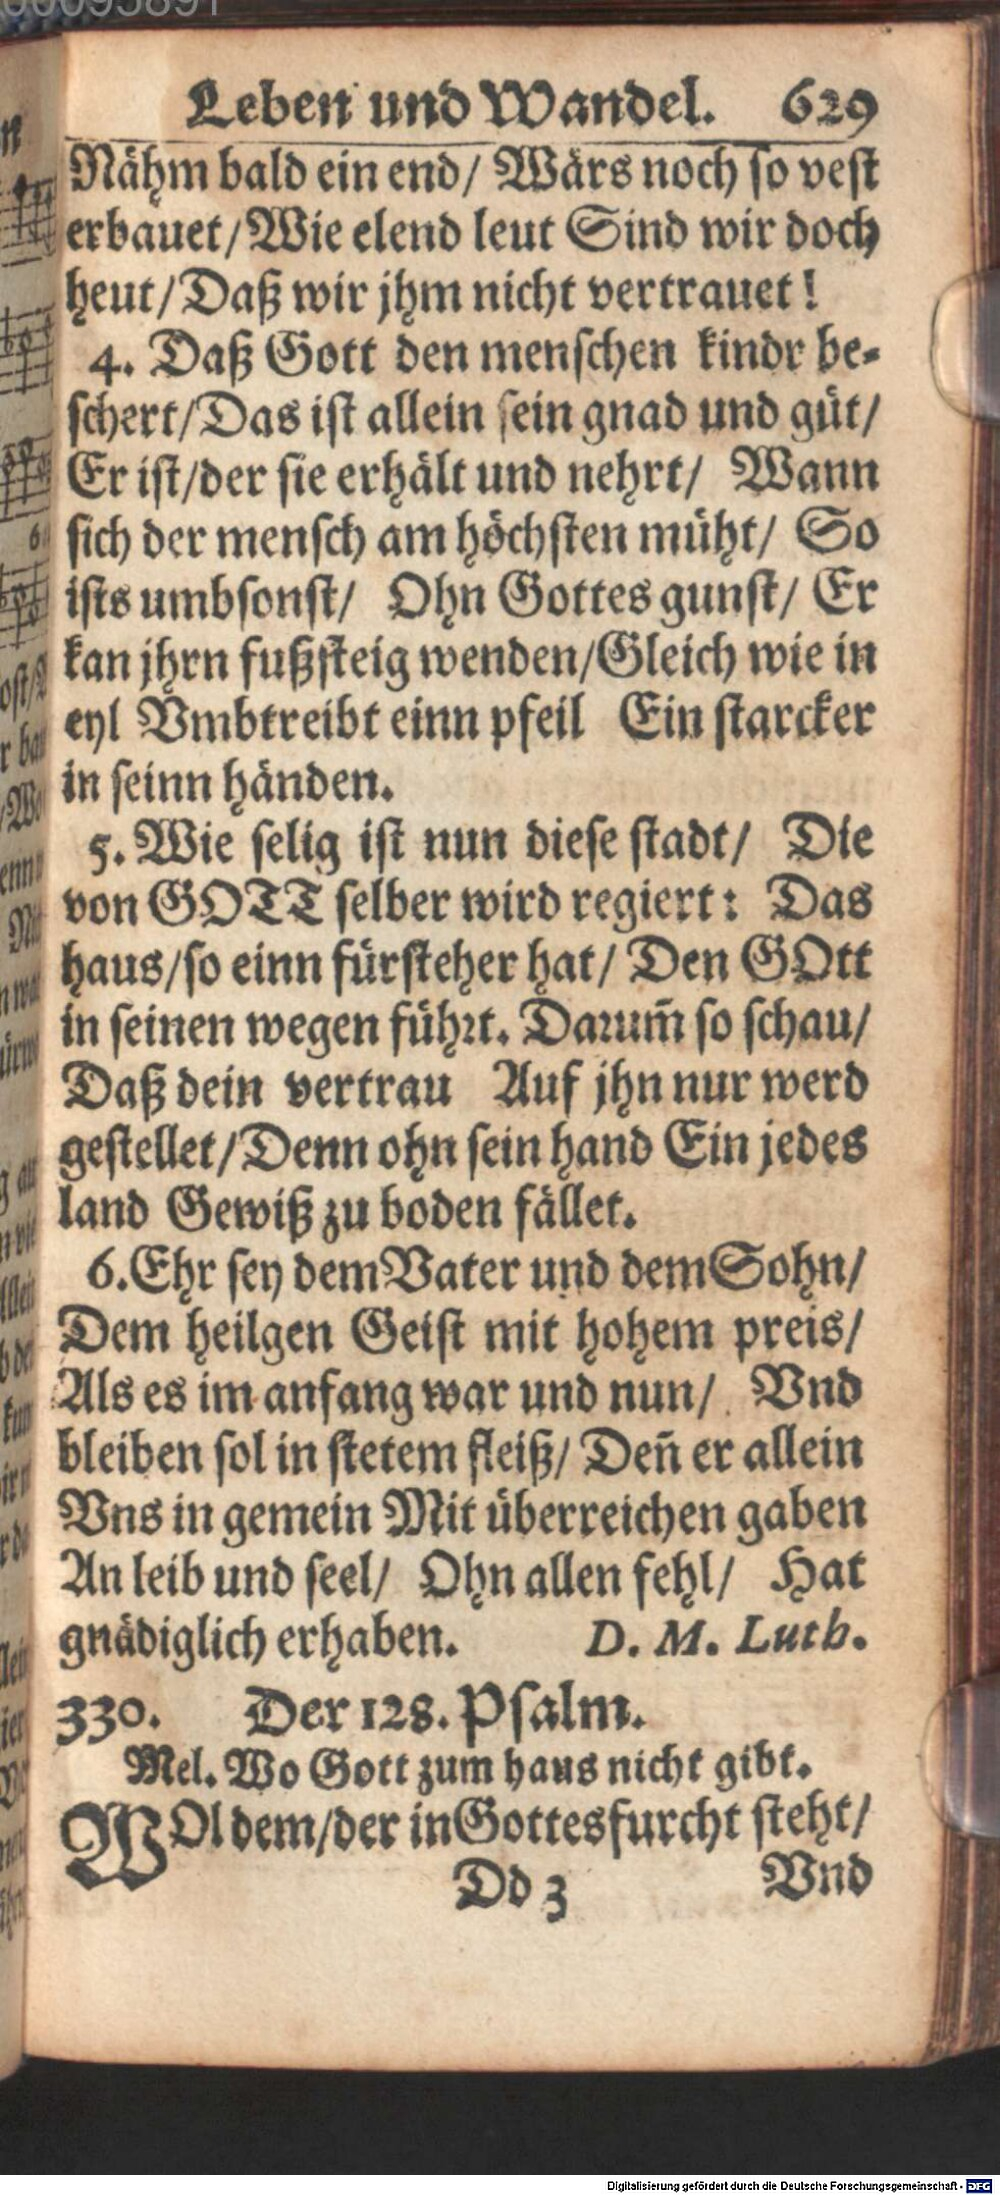 00095891
Leben und Wandel. 629
Nähm bald ein end/ Wärs noch so vest
erbauet/Wie elend leut Sind wir doch
heut/Daß wir jhm nicht vertrauet!
4. Daß Gott den menschen kindr be-
schert/Das ist allein sein gnad und güt/
Er ist/der sie erhält und nehrt/ Wann
sich der mensch am höchsten müht/ So
ists umbsonst/ Ohn Gottes gunst/ Er
kan jhrn fußsteig wenden/Gleich wie in
eyl Vmbtreibt einn pfeil Ein starcker
in seinn händen.
5. Wie selig ist nun diese stadt/ Die
von GOTT selber wird regiert: Das
haus/so einn fürsteher hat/ Den GOtt
in seinen wegen führt. Darum̃ so schau/
Daß dein vertrau Auf jhn nur werd
gestellet/Denn ohn sein hand Ein jedes
land Gewiß zu boden fället.
6. Ehr sey dem Vater und dem Sohn/
Dem heilgen Geist mit hohem preis/
Als es im anfang war und nun/ Vnd
bleiben sol in stetem fleiß/ Deñ er allein
Vns in gemein Mit überreichen gaben
An leib und seel/ Ohn allen fehl/ Hat
gnädiglich erhaben. D. M. Luth.
330. Der 128. Psalm.
Mel. Wo Gott zum haus nicht gibt.
WOl dem/der in Gottesfurcht steht/
Dd 3 Vnd
Digitalisierung gefördert durch die Deutsche Forschungsgemeinschaft - DFG